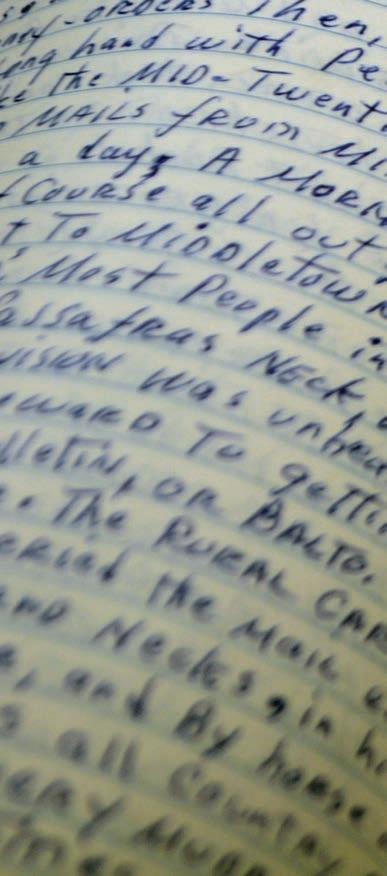 ny-ORDERS Then,
ong hand with Pe
ke The MID-Twent
MAILS from MI
a day, A MORN
f Course all out
t To MIDDleTOWN
Most People in
assafras Neck,
vision was unhea
ward To gettin
lletin, OR BALTO.
. The RURAL CAR
eried the Mail
and Necks, in h
, and By horse
s all Country